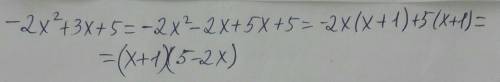 -2x²+3x+5=-2x²-2x+5x+5=-2x(x+1)+5(x+1)=
=(x+1)(5-2x)